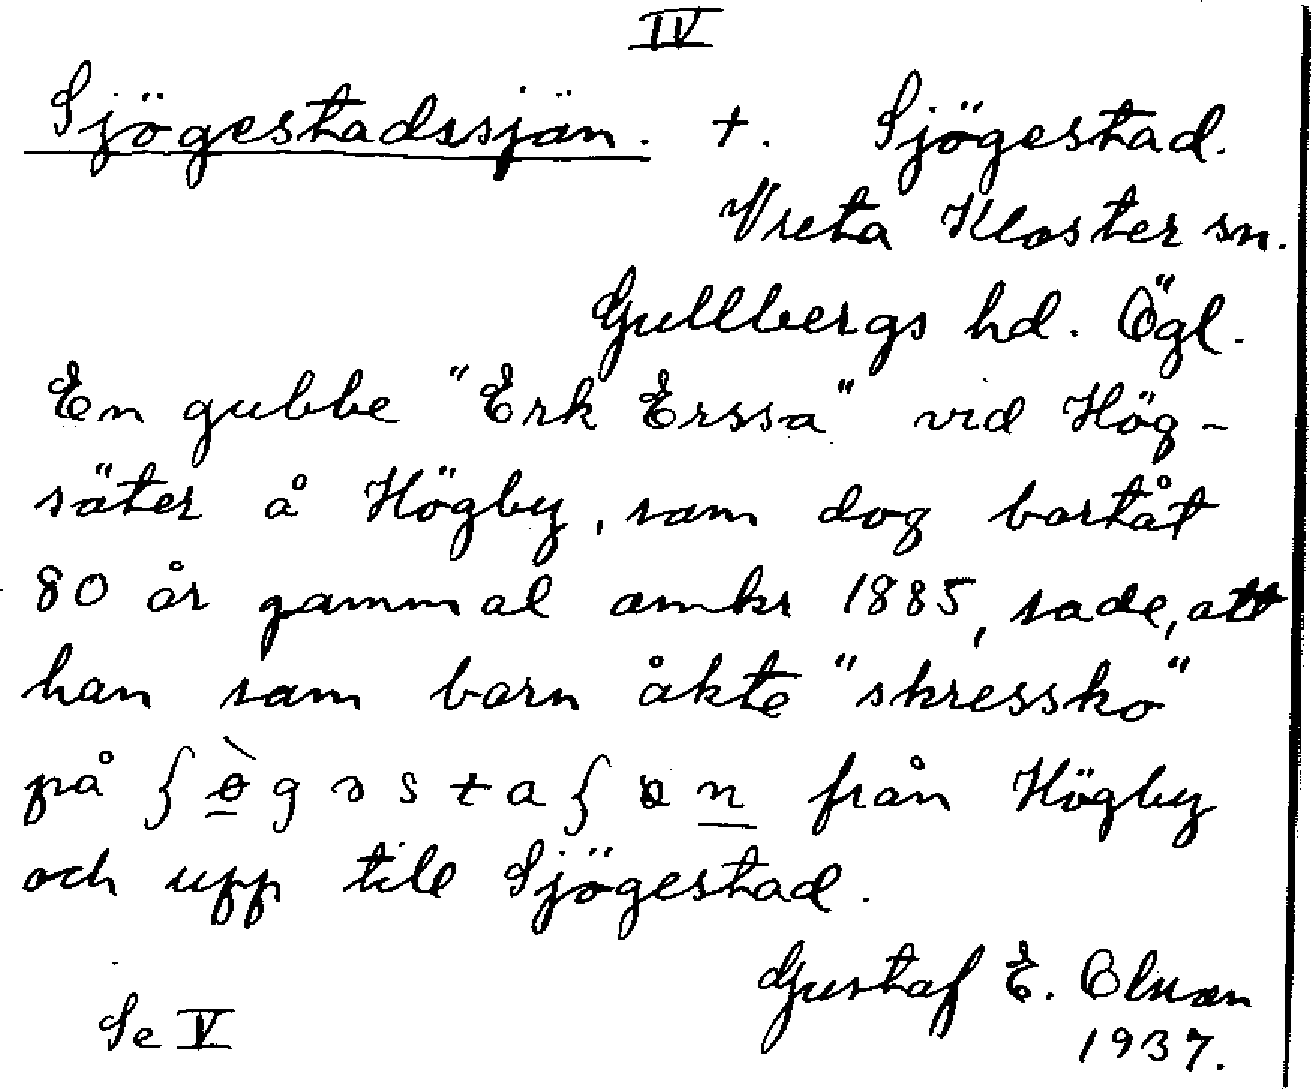 IV
Sjögestadssjön. +. Sjögestad.
Vreta Kloster sn.
Gullbergs hd. Ögl.
En gubbe "Erk Erssa" vid Hög-
säter å Högby, som dog bortåt
80 år gammal omkr 1885, sade, att
han som barn åkte "skressko"
på från Högby
och upp till Sjögestad.
Gustaf E. Olsson
1937.
Se V